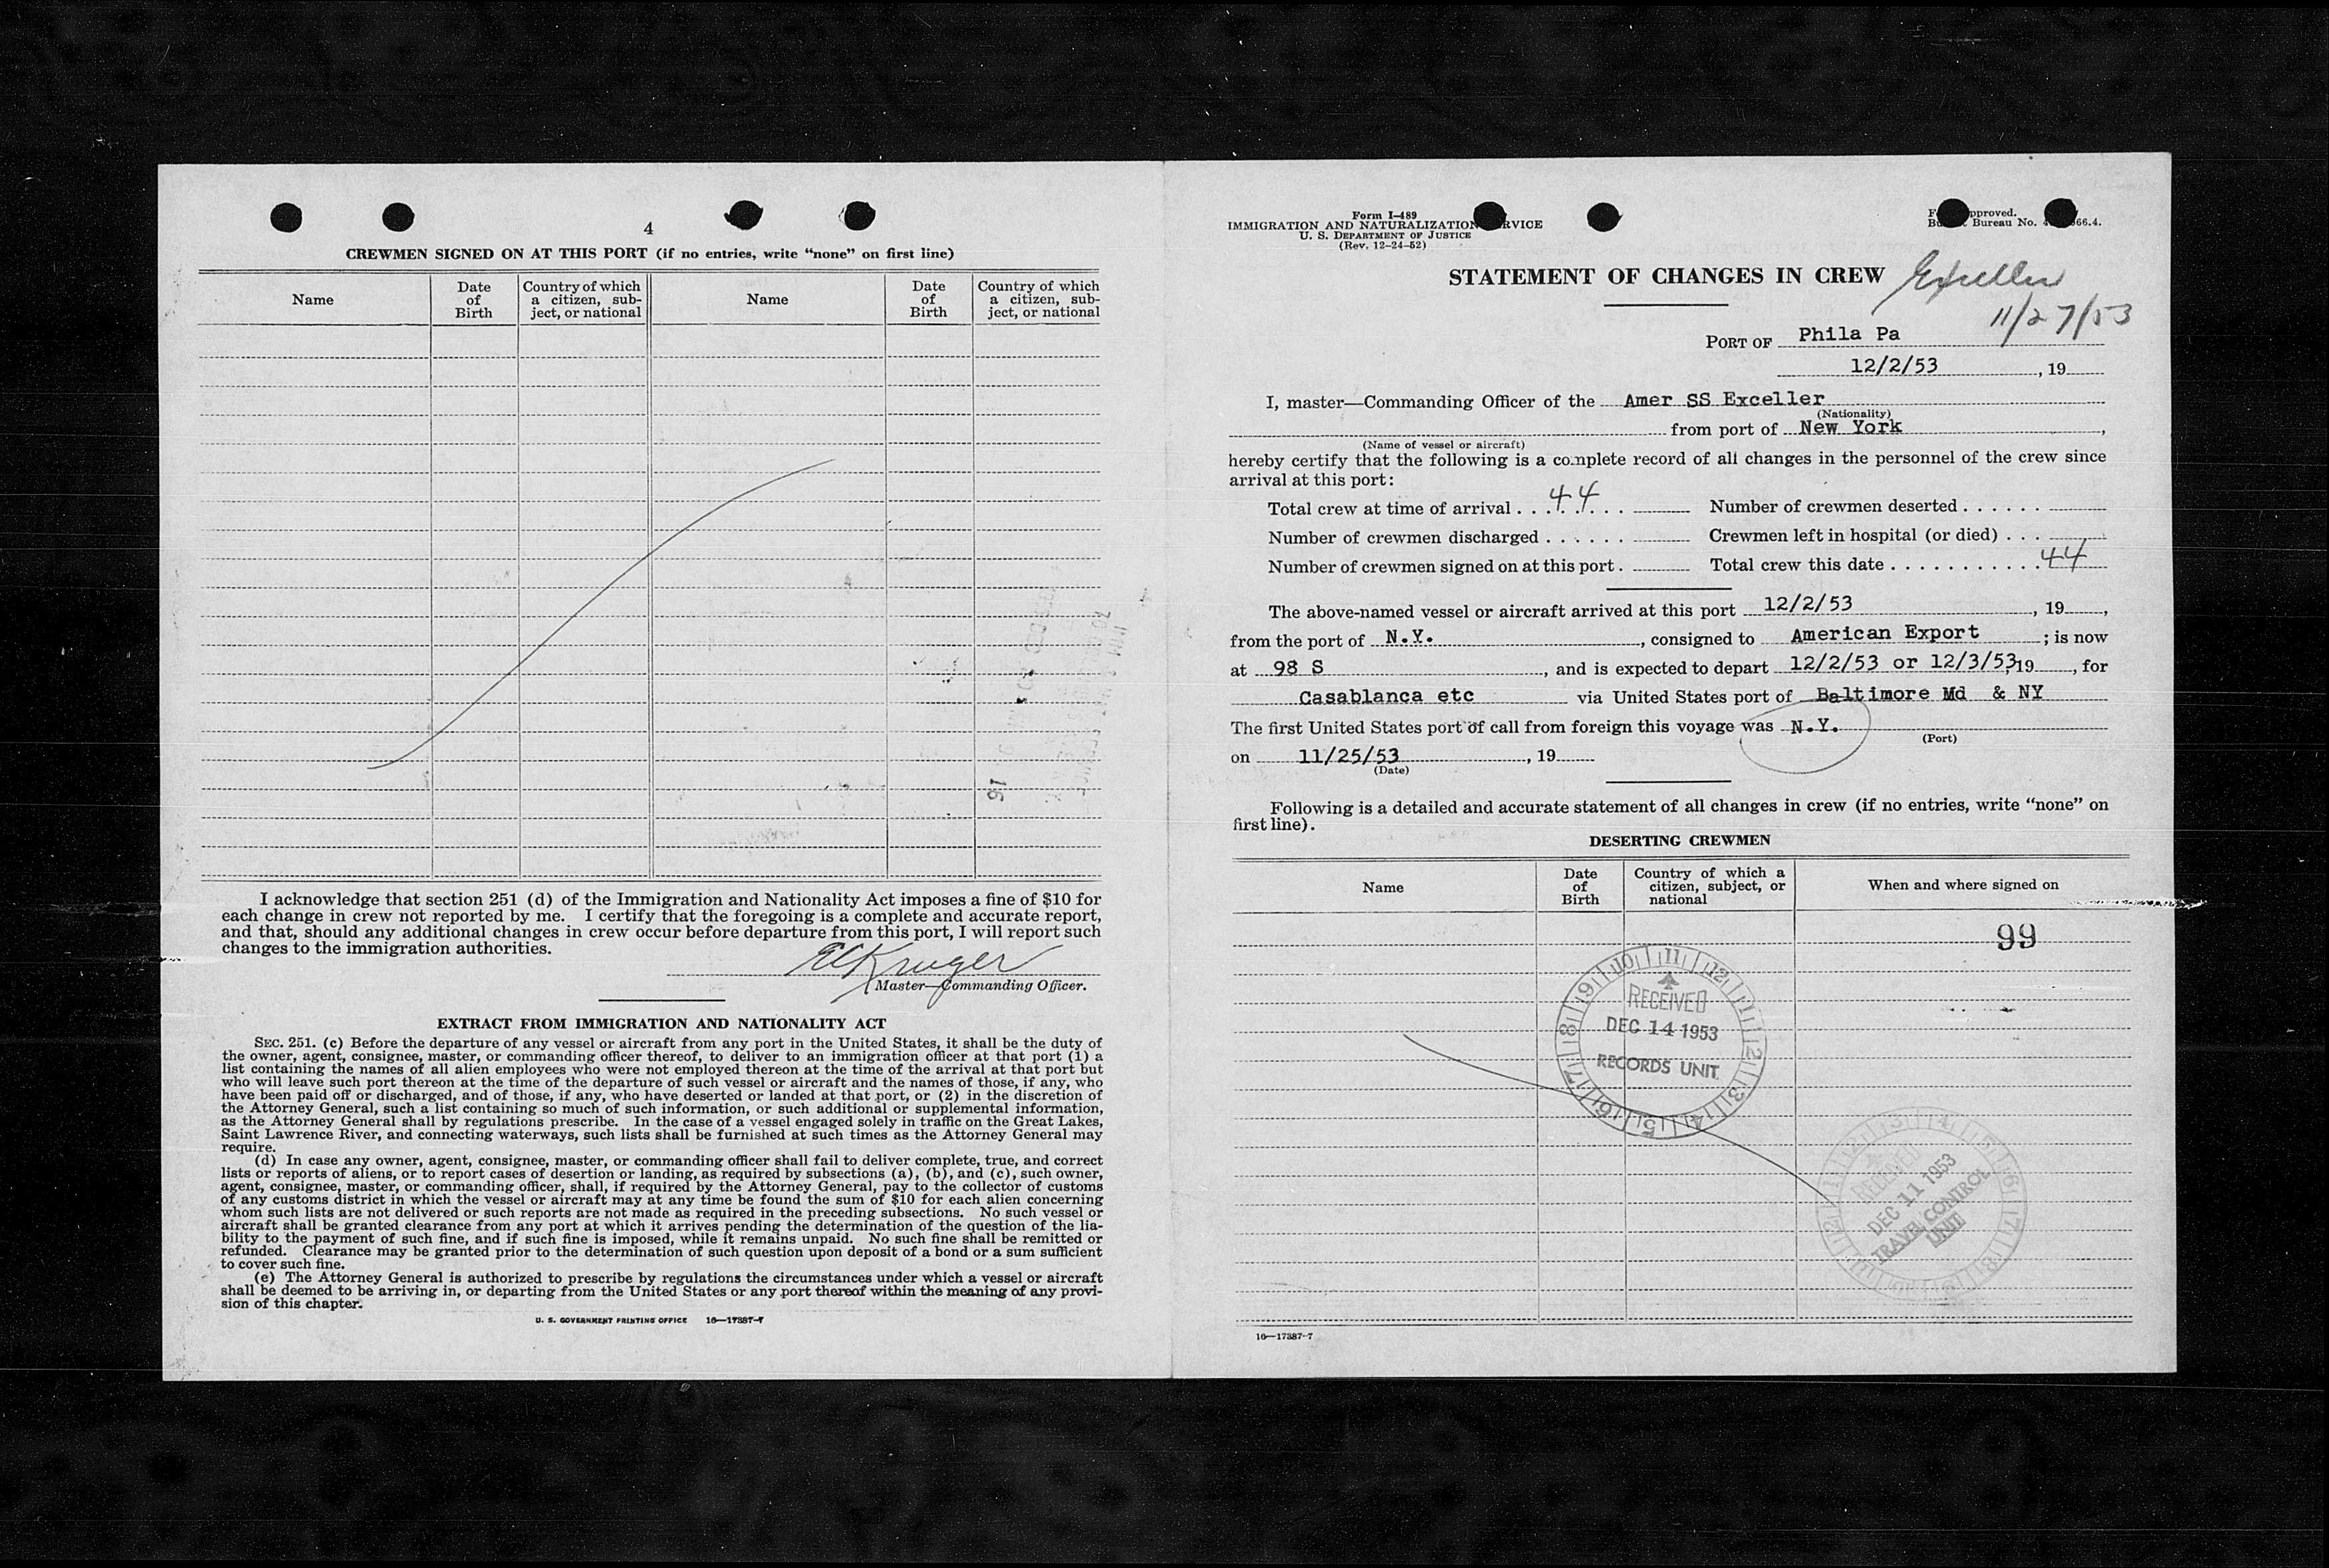 4
CREWMEN SIGNED ON AT THIS PORT (if no entries, write “none” on first line)
Name
Date of Birth
Country of which a citizen, sub-ject, or national
Name
Date of Birth
Country of which a citizen, sub-ject, or national
16
I acknowledge that section 251 (d) of the Immigration and Nationality Act imposes a fine of $10 for
each change in crew not reported by me. I certify that the foregoing is a complete and accurate report,
and that, should any additional changes in crew occur before departure from this port, I will report such
changes to the immigration authorities.
Kruger
Master—Commanding Officer.
EXTRACT FROM IMMIGRATION AND NATIONALITY ACT
SEC. 251. (c) Before the departure of any vessel or aircraft from any port in the United States, it shall be the duty of
the owner, agent, consignee, master, or commanding officer thereof, to deliver to an immigration officer at that port (1) a
list containing the names of all alien employees who were not employed thereon at the time of the arrival at that port but
who will leave such port thereon at the time of the departure of such vessel or aircraft and the names of those, if any, who
have been paid off or discharged, and of those, if any, who have deserted or landed at that port, or (2) in the discretion of
the Attorney General, such a list containing so much of such information, or such additional or supplemental information,
as the Attorney General shall by regulations prescribe. In the case of a vessel engaged solely in traffic on the Great Lakes,
Saint Lawrence River, and connecting waterways, such lists shall be furnished at such times as the Attorney General may
require.
(d) In case any owner, agent, consignee, master, or commanding officer shall fail to deliver complete, true, and correct
lists or reports of aliens, or to report cases of desertion or landing, as required by subsections (a), (b), and (c), such owner,
agent, consignee, master, or commanding officer, shall, if required by the Attorney General, pay to the collector of customs
of any customs district in which the vessel or aircraft may at any time be found the sum of $10 for each alien concerning
whom such lists are not delivered or such reports are not made as required in the preceding subsections. No such vessel or
aircraft shall be granted clearance from any port at which it arrives pending the determination of the question of the lia-
bility to the payment of such fine, and if such fine is imposed, while it remains unpaid. No such fine shall be remitted or
refunded. Clearance may be granted prior to the determination of such question upon deposit of a bond or a sum sufficient
to cover such fine.
(e) The Attorney General is authorized to prescribe by regulations the circumstances under which a vessel or aircraft
shall be deemed to be arriving in, or departing from the United States or any port thereof within the meaning of any provi-
sion of this chapter.
U. S. GOVERNMENT PRINTING OFFICE 16—17387-7
Form I-489
IMMIGRATION AND NATURALIZATION
U. S. DEPARTMENT OF JUSTICE
(Rev. 12-24-52)
Bureau No.
STATEMENT OF CHANGES IN CREW
Exceller
11/27/53
PORT OF Phila Pa
12/2/53, 19
I, master—Commanding Officer of the Amer SS Exceller
(Nationality)
from port of New York,
(Name of vessel or aircraft)
hereby certify that the following is a complete record of all changes in the personnel of the crew since
arrival at this port:
Total crew at time of arrival . . . . . . . 44 Number of crewmen deserted . . . . . .
Number of crewmen discharged . . . . . . Crewmen left in hospital (or died) . . .
Number of crewmen signed on at this port . Total crew this date . . . . . . . . . . . 44
The above-named vessel or aircraft arrived at this port 12/2/53, 19,
from the port of N.Y., consigned to American Export; is now
at 98 S, and is expected to depart 12/2/53 or 12/3/53, 19, for
Casablanca etc via United States port of Baltimore Md & NY
The first United States port of call from foreign this voyage was N.Y.
(Port)
on 11/25/53, 19
(Date)
Following is a detailed and accurate statement of all changes in crew (if no entries, write “none” on
first line).
DESERTING CREWMEN
Name
Date of Birth
Country of which a citizen, subject, or national
When and where signed on
99
RECEIVED
DEC 14 1953
RECORDS UNIT
RECEIVED
DEC 11 1953
TRAVEL CONTROL
UNIT
16—17387-7